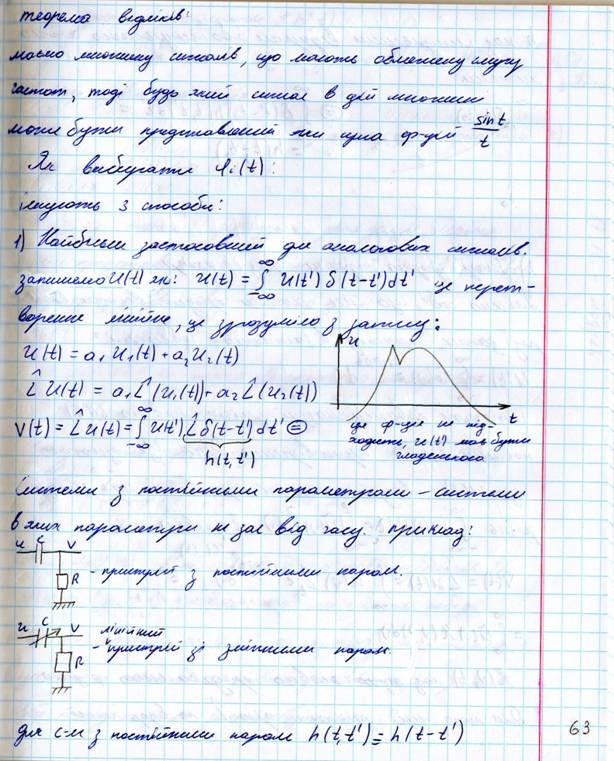 теорема відліків:
маємо множину сигналів, що мають обмежену смугу
частот, тоді будь який сигнал в цій множині
може бути представлений як сума ф-цій sint/t
Як вибирати φᵢ(t):
існують 3 способи:
1) Найбільш застосовний для аналогових сигналів.
запишемо U(t) як: u(t) = ∫_{-∞}^{∞} u(t') δ(t-t')dt' це перет-
ворення лінійне, це зрозуміло з запису:
u(t) = a₁U₁(t) + a₂U₂(t)
L̂ U(t) = a₁L̂(U₁(t)) + a₂L̂(U₂(t))
V(t) = L̂ u(t) = ∫_{-∞}^{∞} u(t') L̂ δ(t-t') dt' ⊜
h(t,t')
u
t
ця ф-ція не під-
ходить, u(t) має бути
гладенькою
Системи з постійними параметрами – системи
в яких параметри не зал від часу. приклад:
u C V
R - пристрій з постійними парам.
u C V лінійний
R - пристрій зі змінними парам.
для с-м з постійними парам h(t,t') ≡ h(t-t')
63